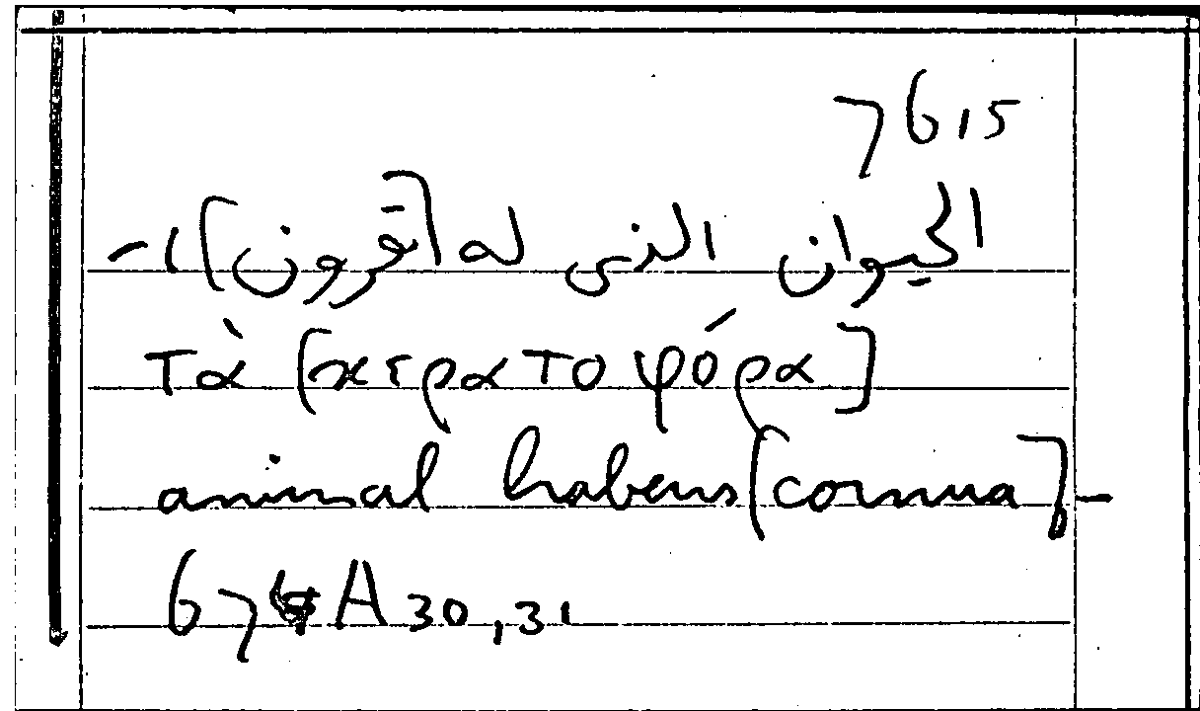 7615
الحيوان الذى له [قرون] ا-
τὰ [κερατοφόρα]
animal habens [cornua]-
674 A 30,31